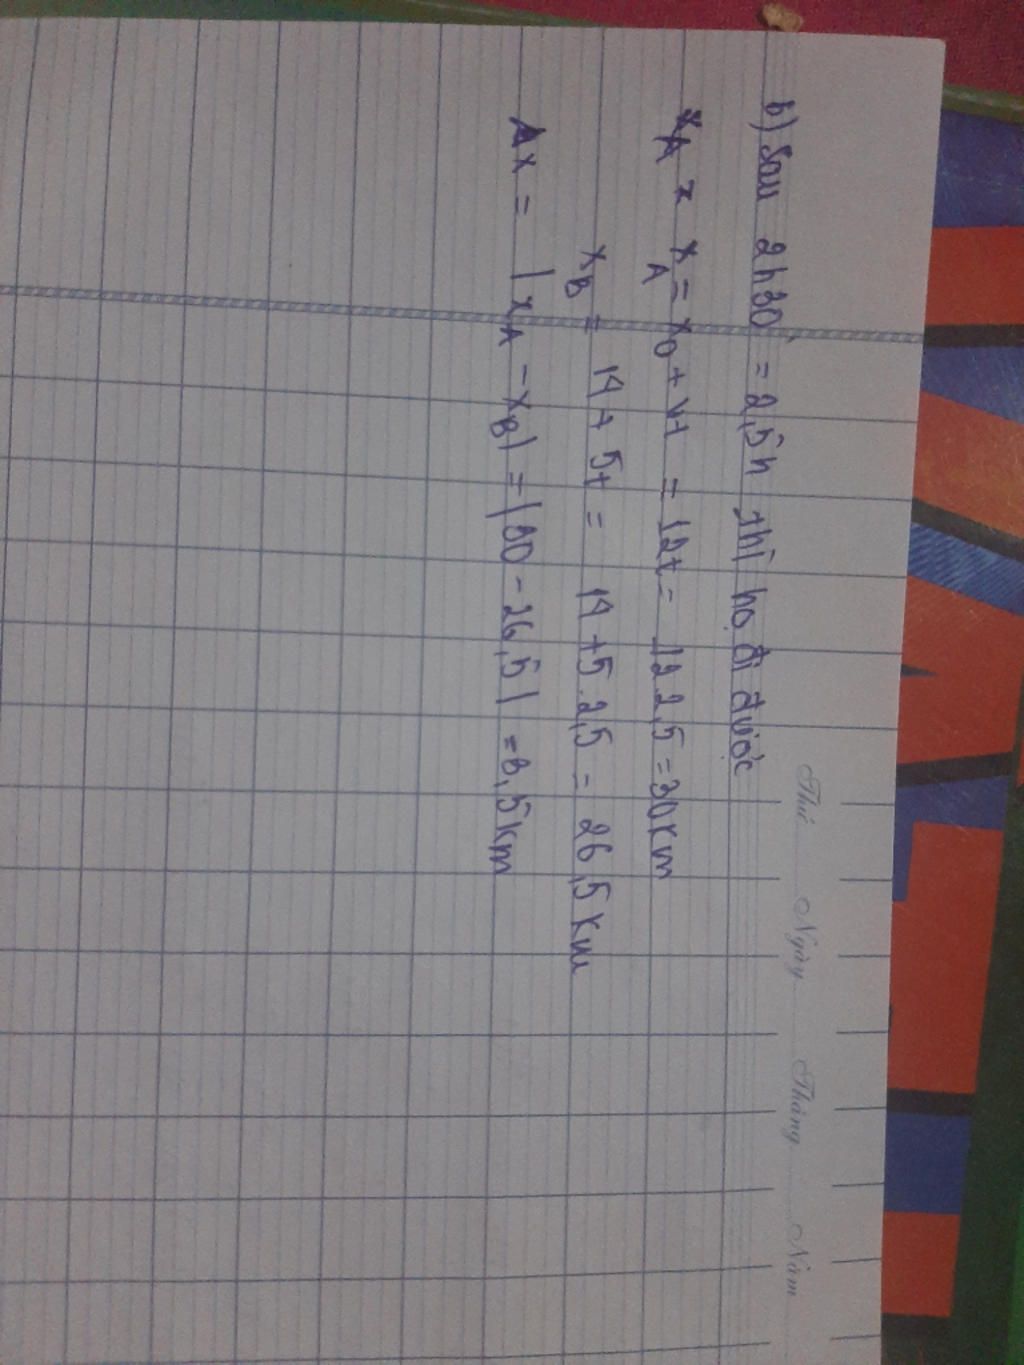 Thứ Ngày Tháng Năm
b) Sau 2h30' = 2,5h thì họ đi được
x_A = x_0 + vt = 12t = 12.2,5 = 30km
x_B = 14 + 5t = 14 + 5.2,5 = 26,5 km
Δx = |x_A - x_B| = |30 - 26,5| = 3,5km